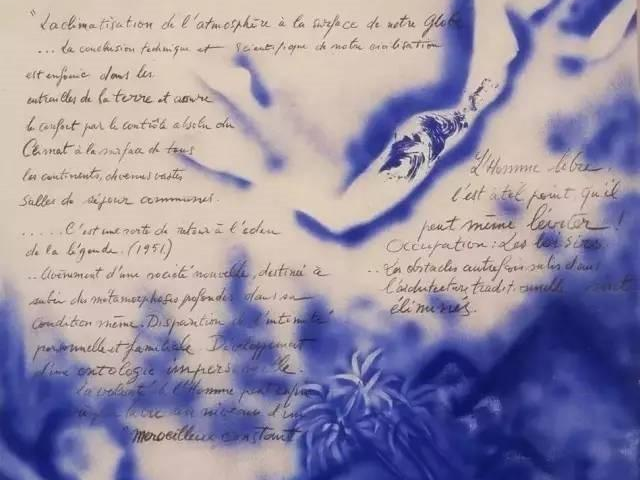 "La climatisation de l'atmosphère à la surface de notre Globe
... La conclusion technique et scientifique de notre civilisation
est enfouie dans les
entrailles de la terre et assure
le confort par le contrôle absolu du
Climat à la surface de tous
les continents, devenus vastes
salles de séjour communes.
..... C'est une sorte de retour à l'eden
de la légende. (1951)
.. Avènement d'une société nouvelle, destinée à
subir des métamorphoses profondes dans sa
condition même. Disparition de l'intimité
personnelle et familiale. Développement
d'une ontologie impersonnelle.
La volonté de l'Homme peut enfin
la vie au niveau d'un
"merveilleux constant
L'Homme libre,
l'est à tel point, qu'il
peut même léviter!
Occupation: Les loisirs.
... Les obstacles autrefois subis dans
l'architecture traditionnelle sont
éliminés.